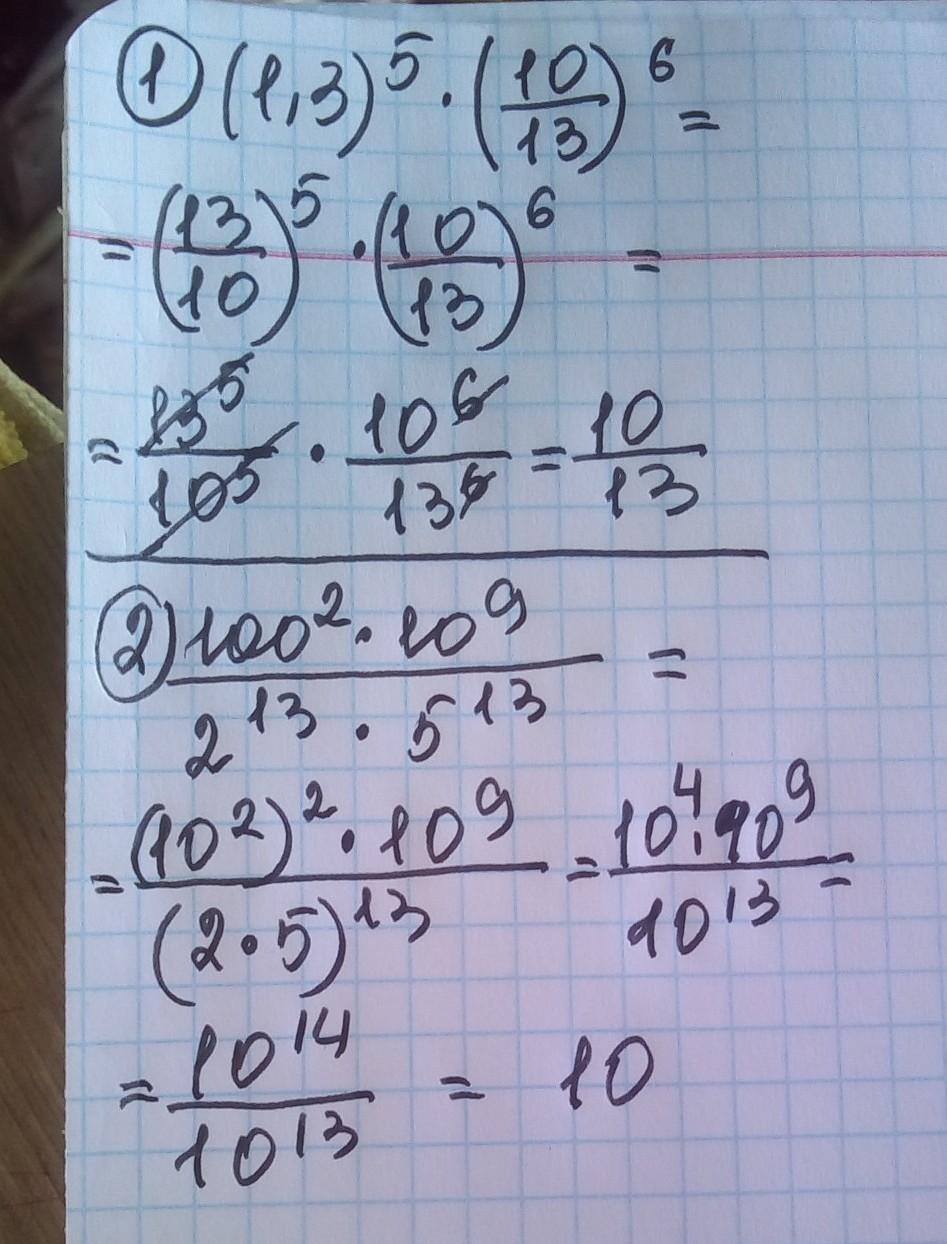 ① (1,3)⁵ · (10/13)⁶ =
= (13/10)⁵ · (10/13)⁶ =
= 13⁵/10⁵ · 10⁶/13⁶ = 10/13
② (100² · 10⁹)/(2¹³ · 5¹³) =
= ((10²)² · 10⁹)/((2·5)¹³) = (10⁴ · 10⁹)/10¹³ =
= 10¹⁴/10¹³ = 10